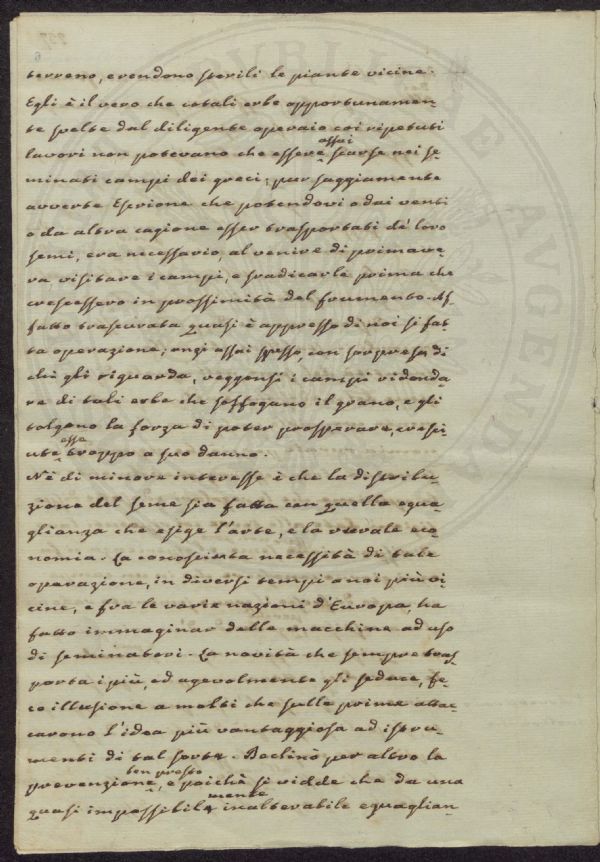 terreno, e rendono sterili le piante vicine.
Egli è il vero che cotali erbe opportunamen-
te svelte dal diligente operaio coi ripetuti
lavori non potevano che essere assai scarse nei se-
minati campi dei greci; pur saggiamente
avverte Esrione che potendovi o dai venti
o da altra cagione esser trasportati de' loro
semi, era necessario, al venire di primave-
ra visitare i campi, e sradicarle prima che
crescessero in prossimità del frumento. Af-
fatto trascurata quasi è appresso di noi sì fat-
ta operazione; anzi assai spesso, con sorpresa di
chi gli riguarda, veggonsi i campi ridonda-
re di tali erbe che soffogano il grano, e gli
tolgono la forza di poter prosperare, cresci-
ute esse troppo a suo danno.
Nè di minore interesse è che la distribu-
zione del seme sia fatta con quella egua-
glianza che esige l'arte, e la rurale eco-
nomia. La conosciuta necessità di tale
operazione, in diversi tempi a noi più vi-
cine, e fra le varie nazioni d'Europa, ha
fatto immaginar delle macchine ad uso
di seminatori. La novità che sempre tras-
porta i più, ed agevolmente gli seduce, fe-
ce illusione a molti che sulle prime attac-
carono l'idea più vantaggiosa ad istru-
menti di tal sorte. Declinò per altro la
prevenzione ben presto, e poichè si vidde che da una
quasi impossibilmente inalterabile eguaglian-